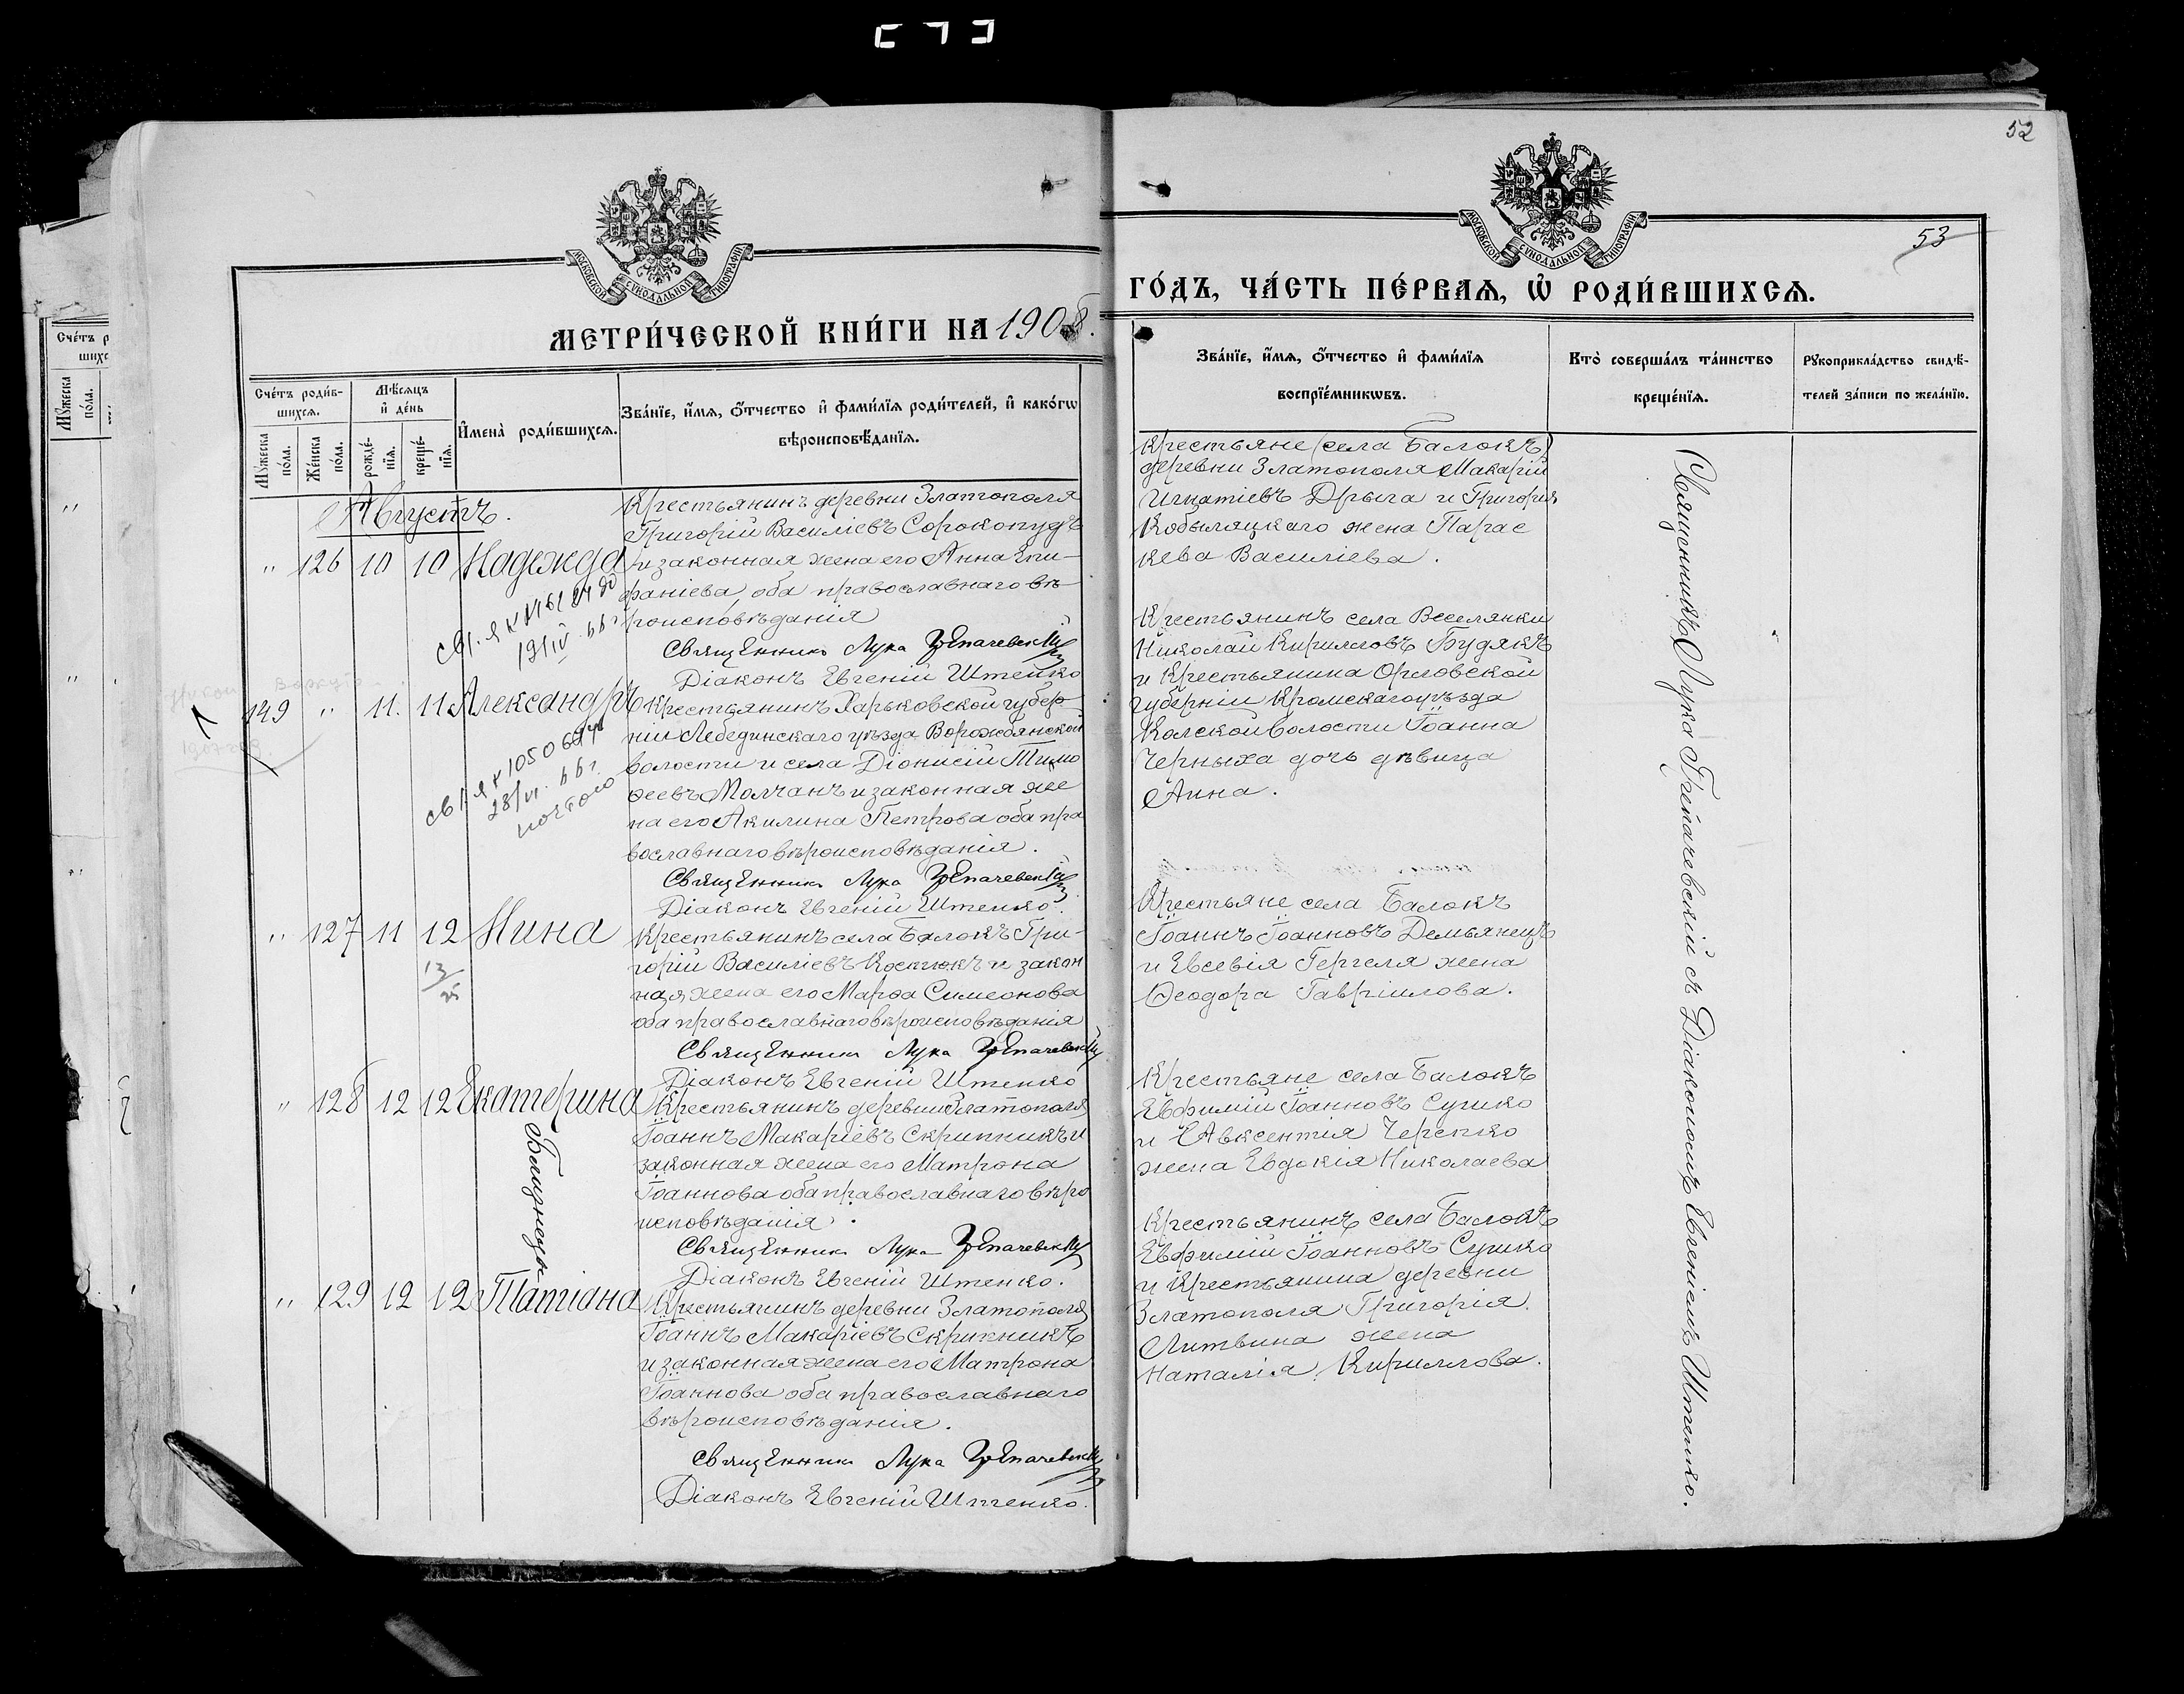 52
53
МОСКОВСКОЙ СѴНОДАЛЬНОЙ ТИПОГРАФІИ
МОСКОВСКОЙ СѴНОДАЛЬНОЙ ТИПОГРАФІИ
МЕТРИ́ЧЕСКОЙ КНИ́ГИ НА 1908.
ГО́ДЪ, ЧА́СТЬ ПЕ́РВАѦ, Ѡ РОДИ́ВШИХСѦ.
Сче́тъ роди́в-
шихсѧ.
Мѣ́сѧцъ
и҆ де́нь
Мꙋ́жеска
по́ла.
Же́нска
по́ла.
рожде́-
нїѧ.
креще́-
нїѧ.
И҆мена̀ роди́вшихсѧ.
Зва́нїе, и҆́мѧ, ѻ҆́тчество и҆ фами́лїѧ роди́телей, и҆ како́гѡ
вѣроисповѣ́данїѧ.
Зва́нїе, и҆́мѧ, ѻ҆́тчество и҆ фами́лїѧ
воспрїе́мникѡвъ.
Кто̀ соверша́лъ та́инство
креще́нїѧ.
Рꙋкоприкла́дство свидѣ́-
телей за́писи по жела́нїю.
Августъ.
" 126 10 10 Надежда
Крестьянинъ деревни Златополя
Григорій Василіевъ Сорокопудъ
и законная жена его Анна Епи-
фаніева, оба православнаго вѣ
роисповѣданія
Священникъ Лука Грепачевскій
Діаконъ Евгеній Штепко
Крестьяне (села Балокъ)
деревни Златополя Макарій
Игнатіевъ Дрыга и Григорія
Кобыляцкаго жена Парас
кева Василіева.
19/IV. 66г
149 " 11. 11 Александръ
Крестьянинъ Харьковской губер-
ніи Лебединскаго уѣзда Ворожбянской
волости и села Діонисій Тимо
ѳеевъ Молчанъ и законная же
на его Акилина Петрова оба пра
вославнаго вѣроисповѣданія.
Священникъ Лука Грепачевскій
Діаконъ Евгеній Штепко.
Крестьянинъ села Веселянки
Николай Кирилловъ Будякъ
и Крестьянина Орловской
губерніи Кромскаго уѣзда
волости Іоанна
Черныха дочь дѣвица
Анна.
28/VI. 66г.
" 127 11 12 Нина
13/25
Крестьянинъ села Балокъ Гри-
горій Василіевъ Костюкъ и закон
ная жена его Марѳа Симеонова
оба православнаго вѣроисповѣданія
Священникъ Лука Грепачевскій
Діаконъ Евгеній Штепко
Крестьяне села Балокъ
Іоаннъ Іоанновъ Демьянецъ
и Евсевія Гергеля жена
Ѳеодора Гавріилова.
" 128 12 12 Екатерина
Близнецы
Крестьянинъ деревни Златополя
Іоаннъ Макаріевъ Скрипникъ и
законная жена его Матрона
Іоаннова оба православнаго вѣро
исповѣданія.
Священникъ Лука Грепачевскій
Діаконъ Евгеній Штепко.
Крестьяне села Балокъ
Евфимій Іоанновъ Сушко
и Авксентія Черепко
жена Евдокія Николаева
" 129 12 12 Татіана
Крестьянинъ деревни Златополя
Іоаннъ Макаріевъ Скрипникъ
и законная жена его Матрона
Іоаннова оба православнаго
вѣроисповѣданія.
Священникъ Лука Грепачевскій
Діаконъ Евгеній Штепко.
Крестьянинъ села Балокъ
Евфимій Іоанновъ Сушко
и Крестьянина деревни
Златополя Григорія
Литвина жена
Наталія Кириллова.
Священникъ Лука Грепачевскій съ Діакономъ Евгеніемъ Штепко.